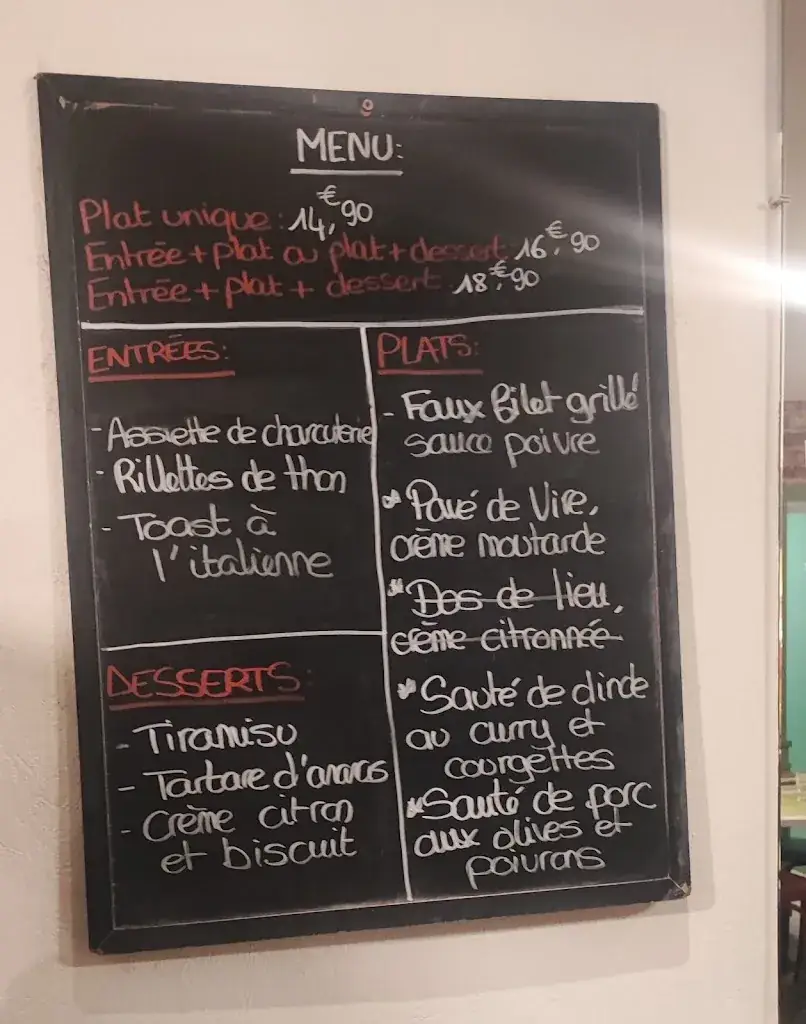 MENU:
Plat unique : 14,€90
Entrée + plat ou plat + dessert : 16,€90
Entrée + plat + dessert : 18,€90
ENTRÉES:
- Assiette de charcuterie
- Rillettes de thon
- Toast à
l'italienne
DESSERTS:
- Tiramisu
- Tartare d'ananas
- Crème citron
et biscuit
PLATS:
- Faux filet grillé
sauce poivre
* Pavé de Vire,
crème moutarde
* Dos de lieu,
crème citronnée
* Sauté de dinde
au curry et
courgettes
* Sauté de porc
aux olives et
poivrons